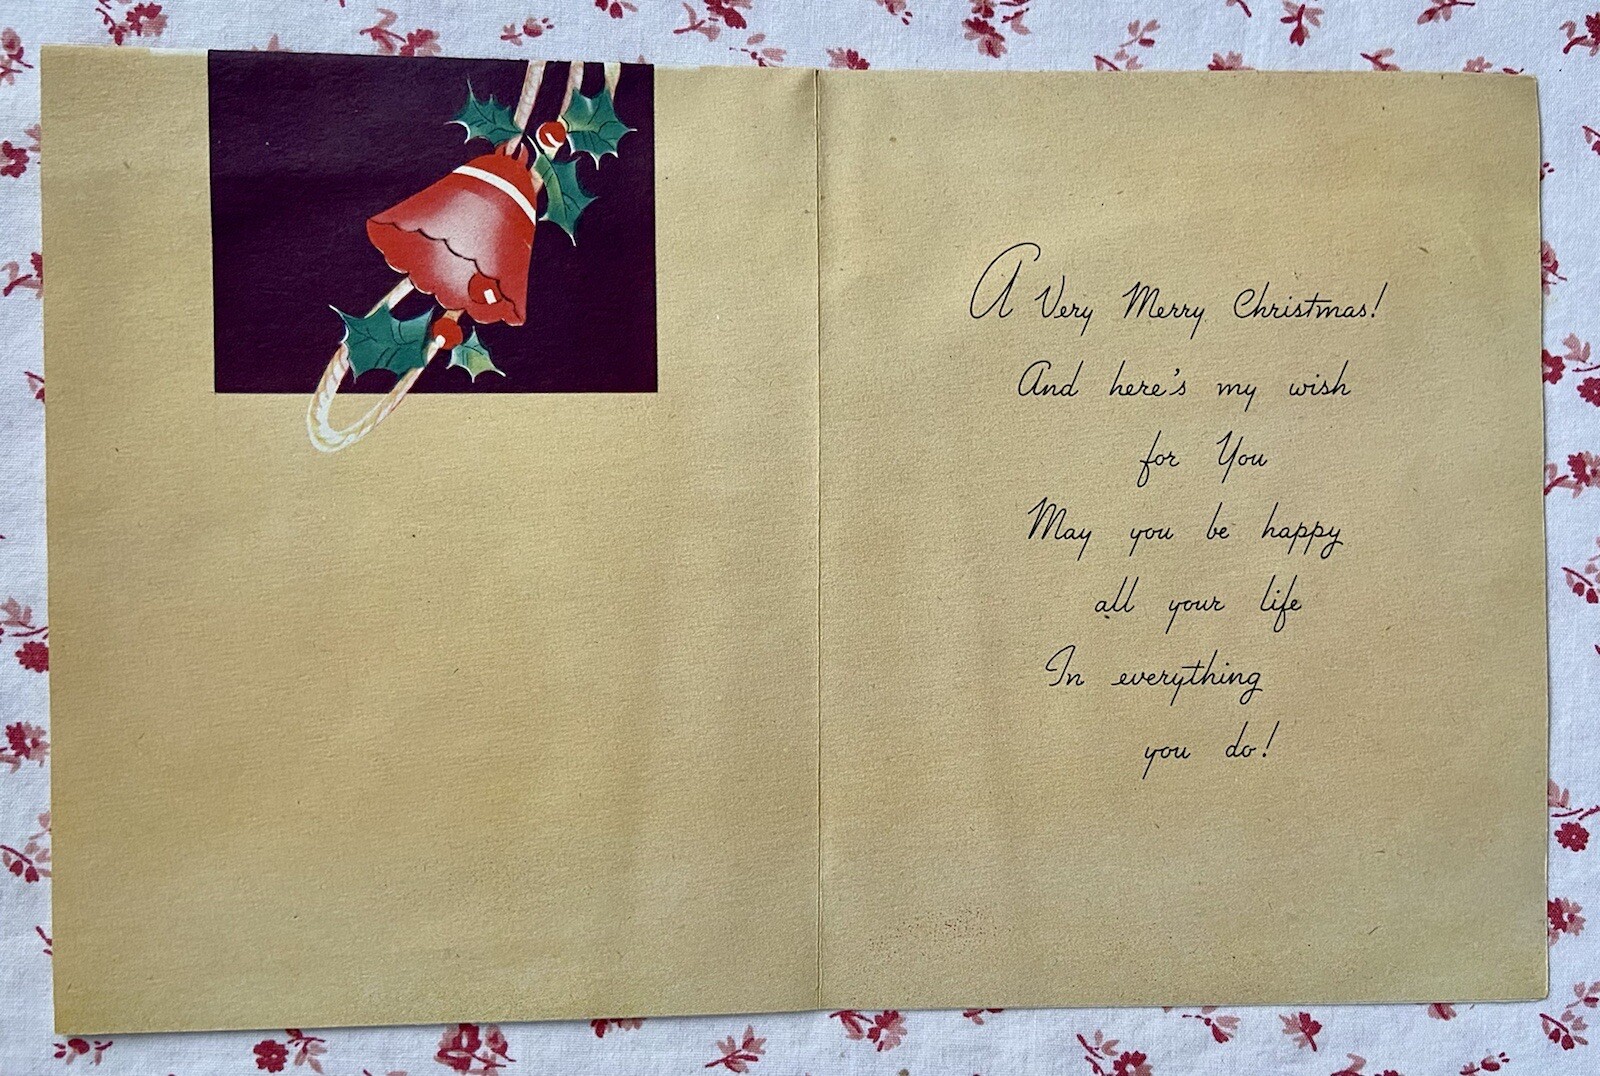 A Very Merry Christmas!
And here's my wish
for You
May you be happy
all your life
In everything
you do!